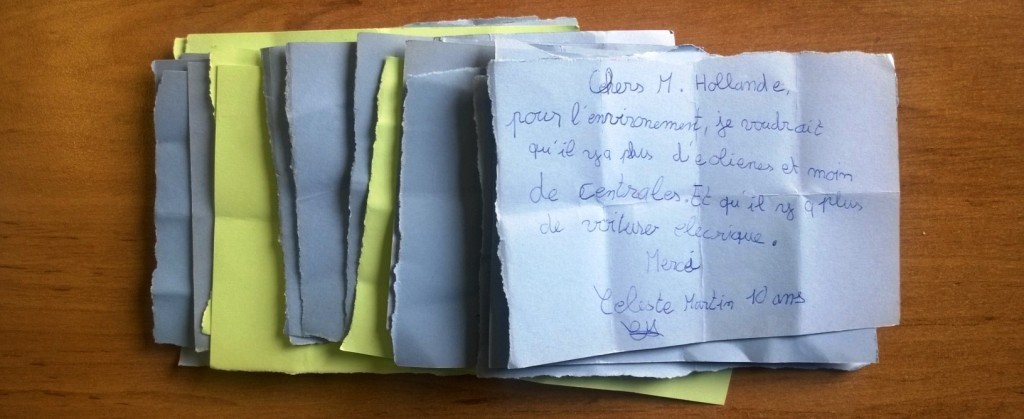 Chers M. Hollande,
pour l'environement, je voudrait
qu'il y a plus d'eolienes et moin
de centrales. Et qu'il y a plus
de voituser elecrique.
Merci
Celeste Martin 10 ans